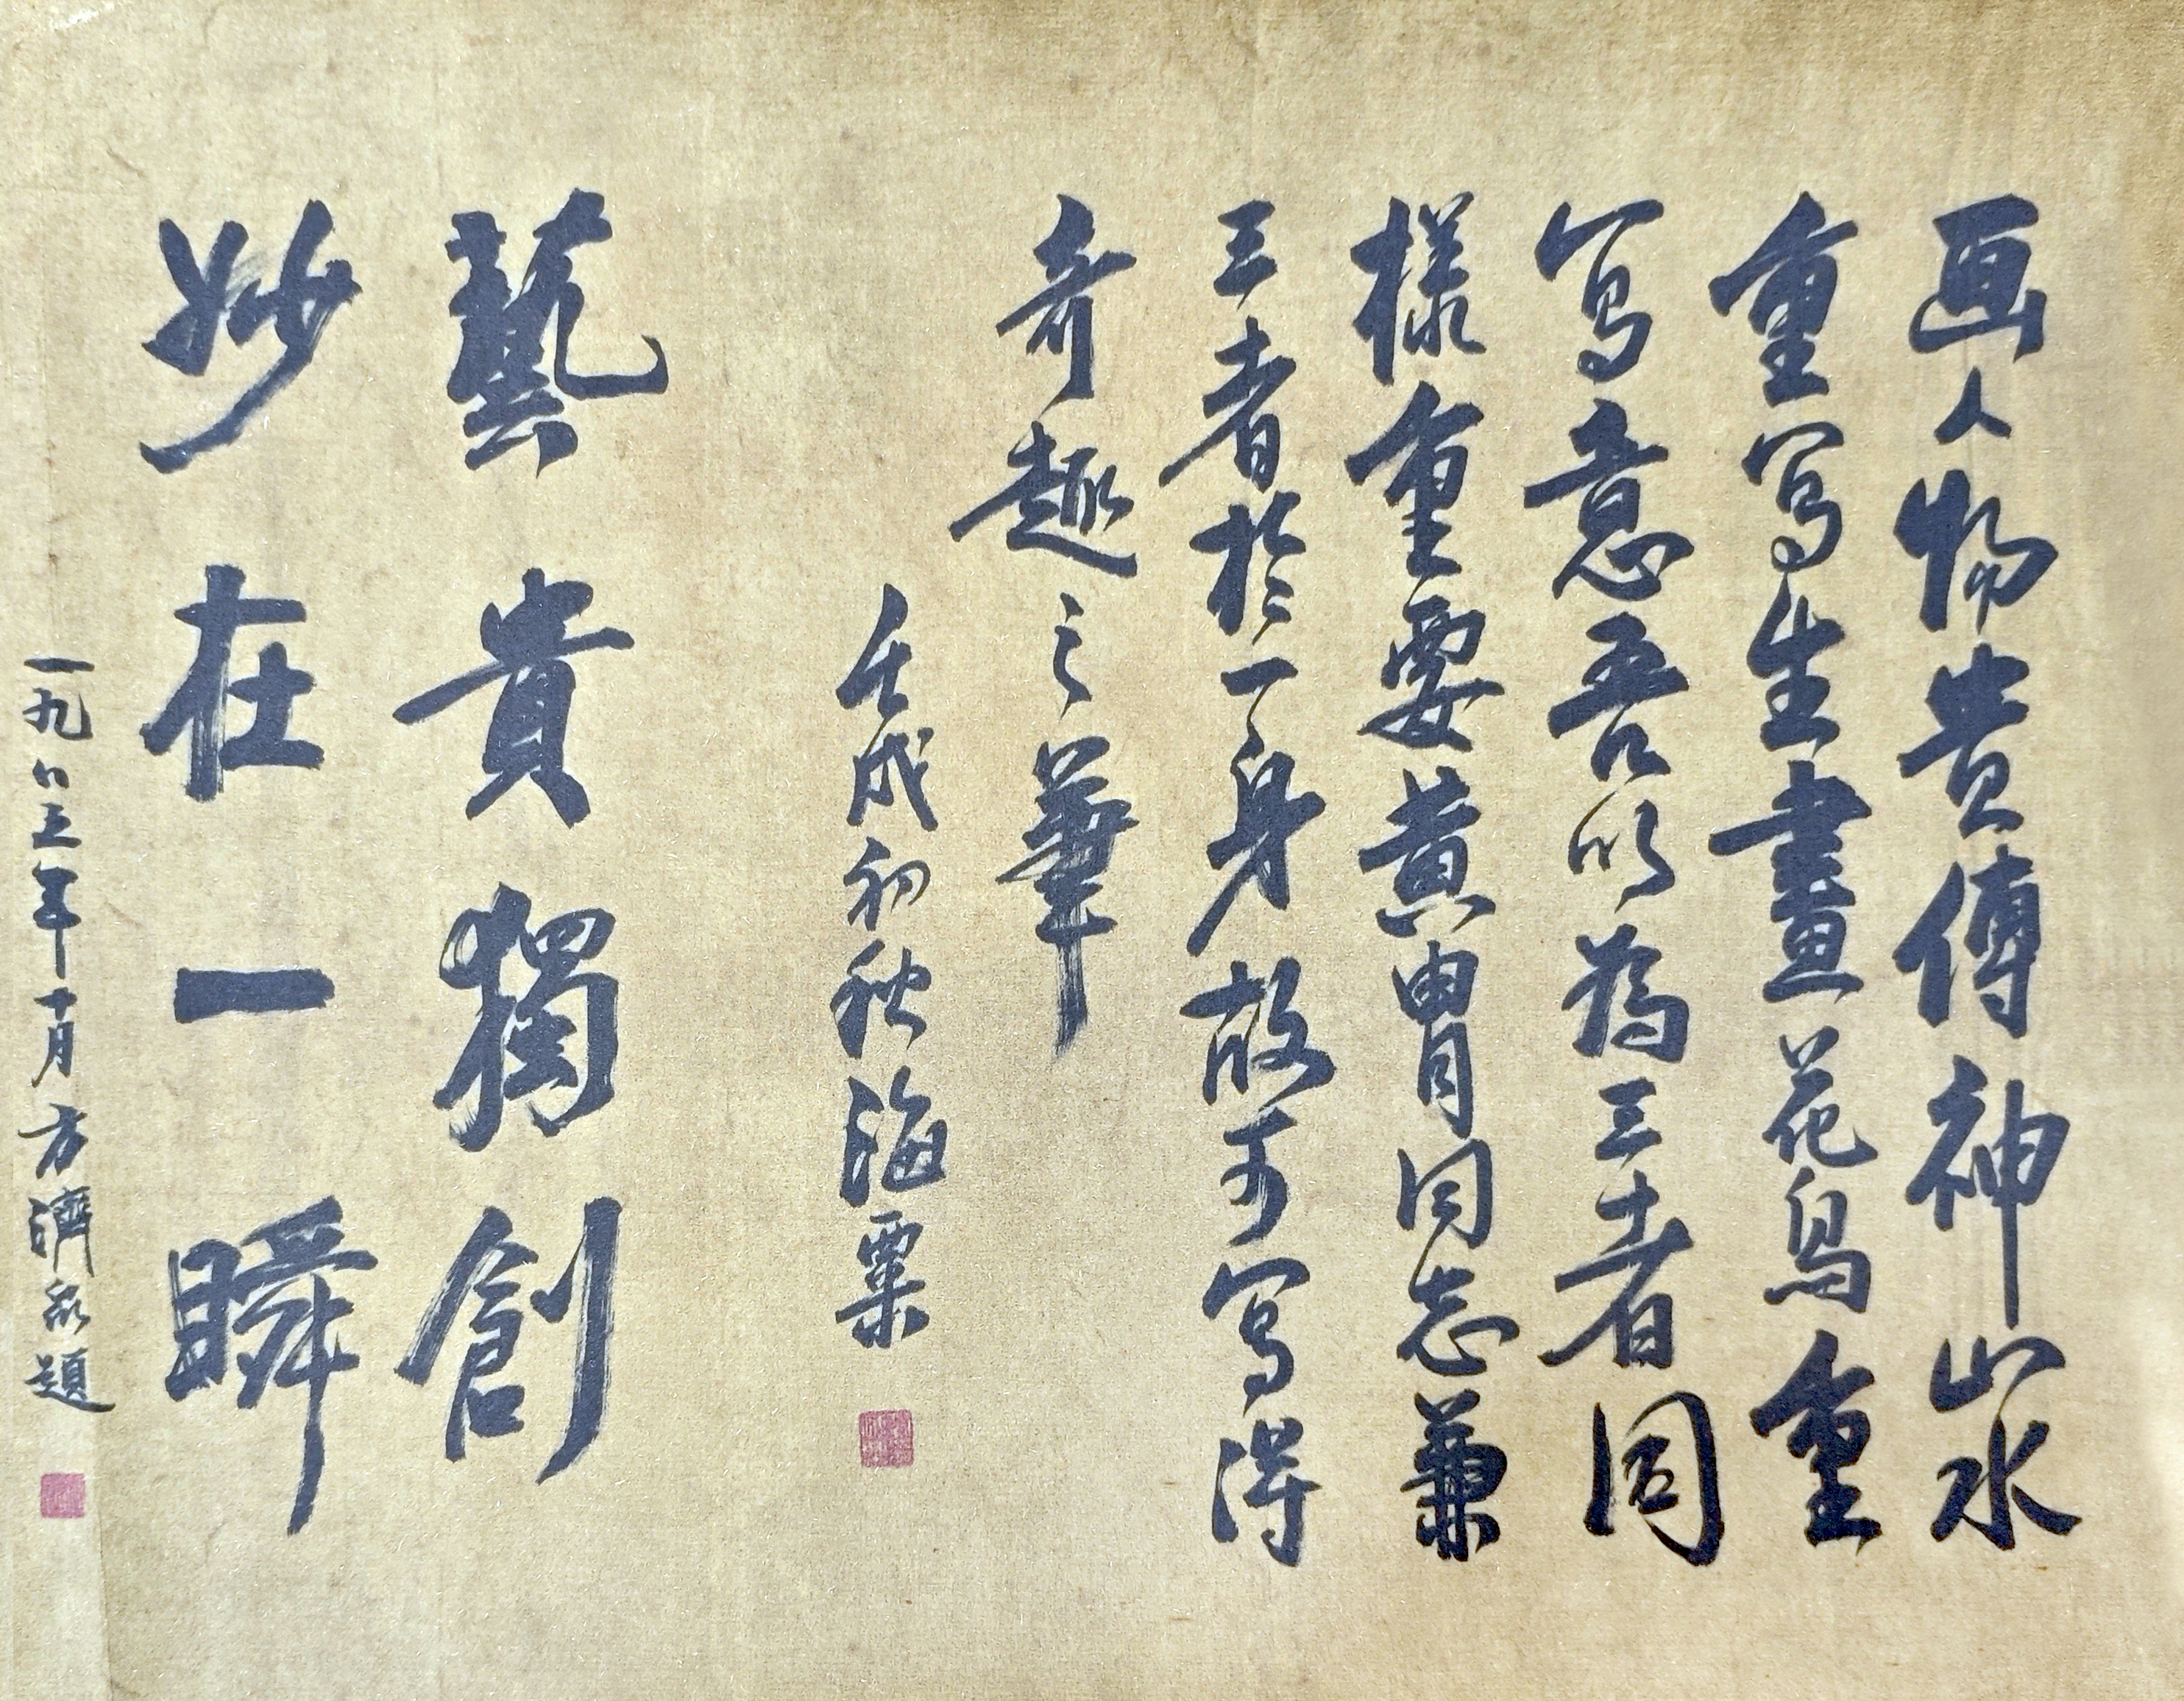 画人物贵傳神山水
重寫生畫花鳥重
寫意吾以為三者同
樣重要黄胄同志兼
三者於一身故可寫得
奇趣之華
壬戌初秋海粟
藝貴獨創
妙在一瞬
一九八三年十月方濟衆題